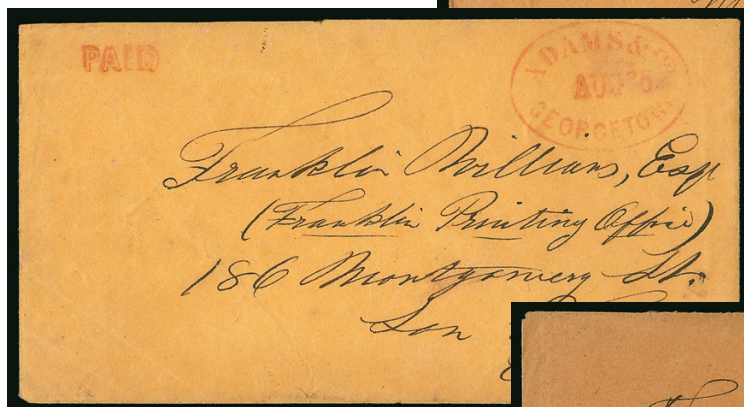 PAID
ADAMS & Co
AUG
GEORGETOWN
Franklin Williams, Esqr
(Franklin Printing Office)
186 Montgomery St.
San